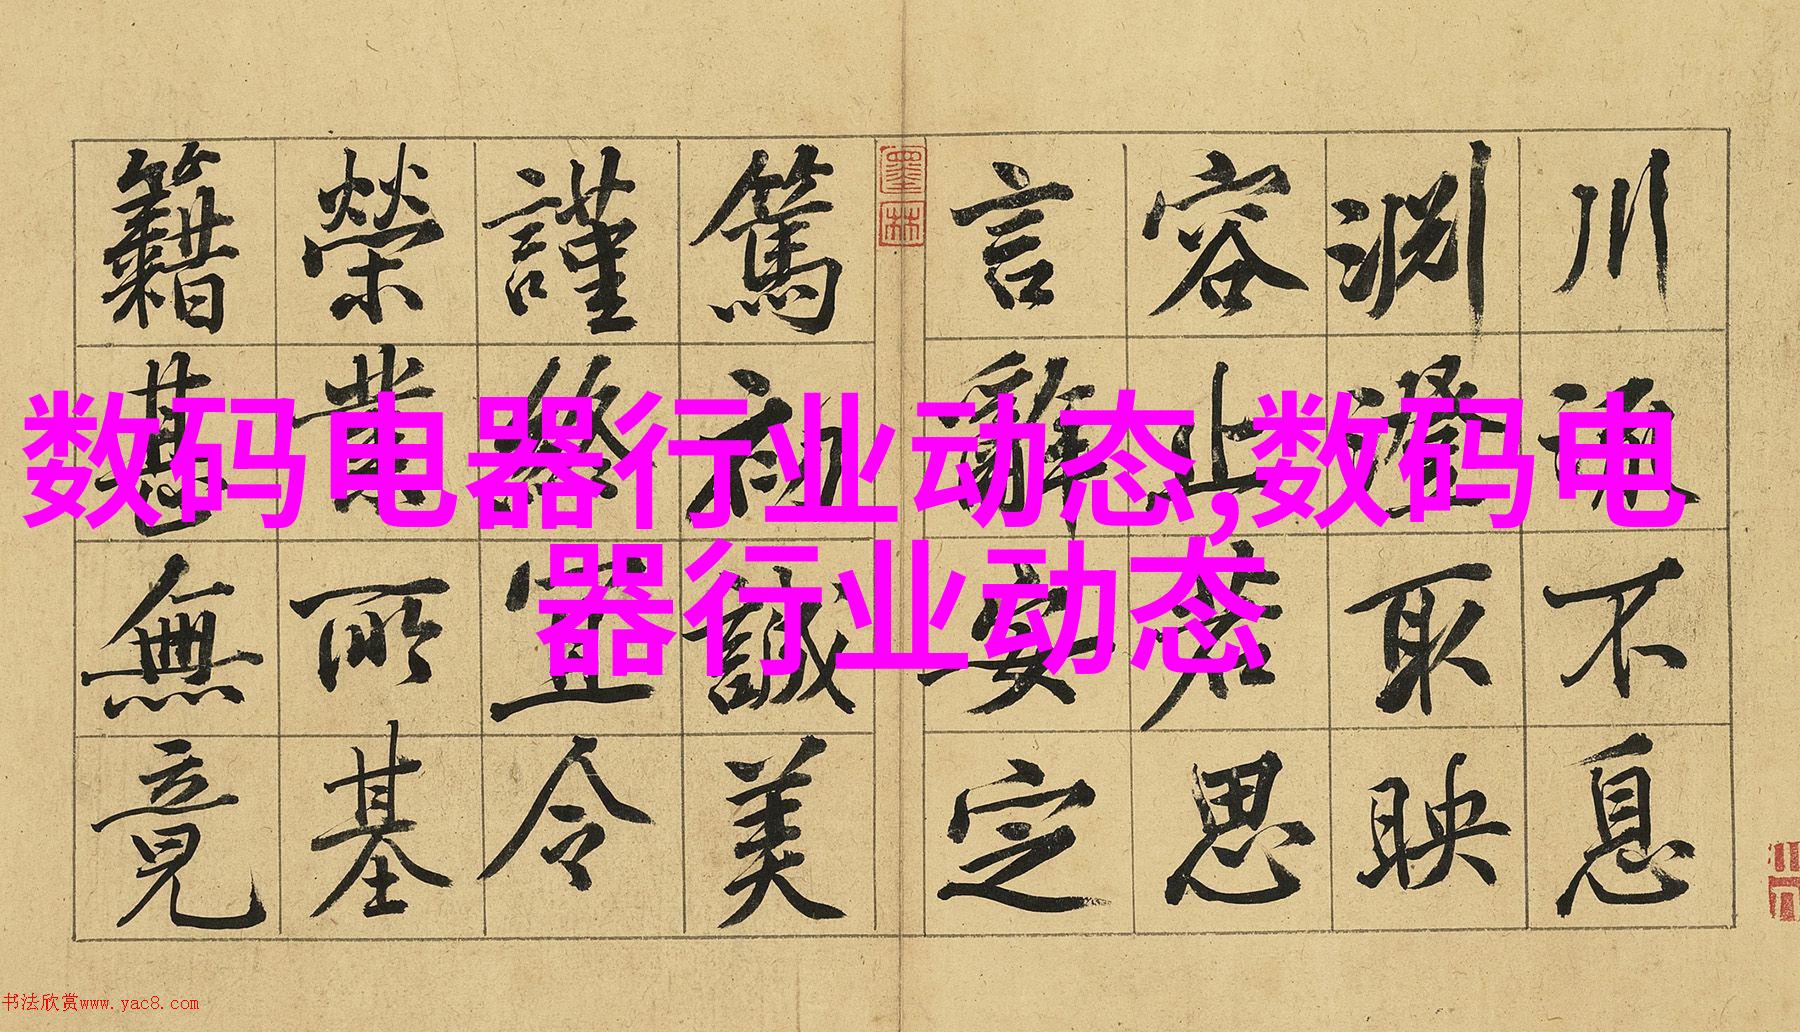 数码电器行业动态,数码电
器行业动态
川流不息
淵澄取映
容止若思
言辭安定
墨林
篤初誠美
謹終宜令
榮業所基
籍甚無竟
书法欣赏www.yac8.com